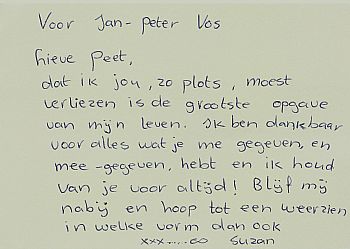 Voor Jan-peter Vos
Lieve Peet,
dat ik jou, zo plots, moest
verliezen is de grootste opgave
van mijn leven. Ik ben dankbaar
voor alles wat je me gegeven, en
mee-gegeven, hebt en ik houd
van je voor altijd! Blijf mij
nabij en hoop tot een weerzien
in welke vorm dan ook
xxx.....∞ Suzan